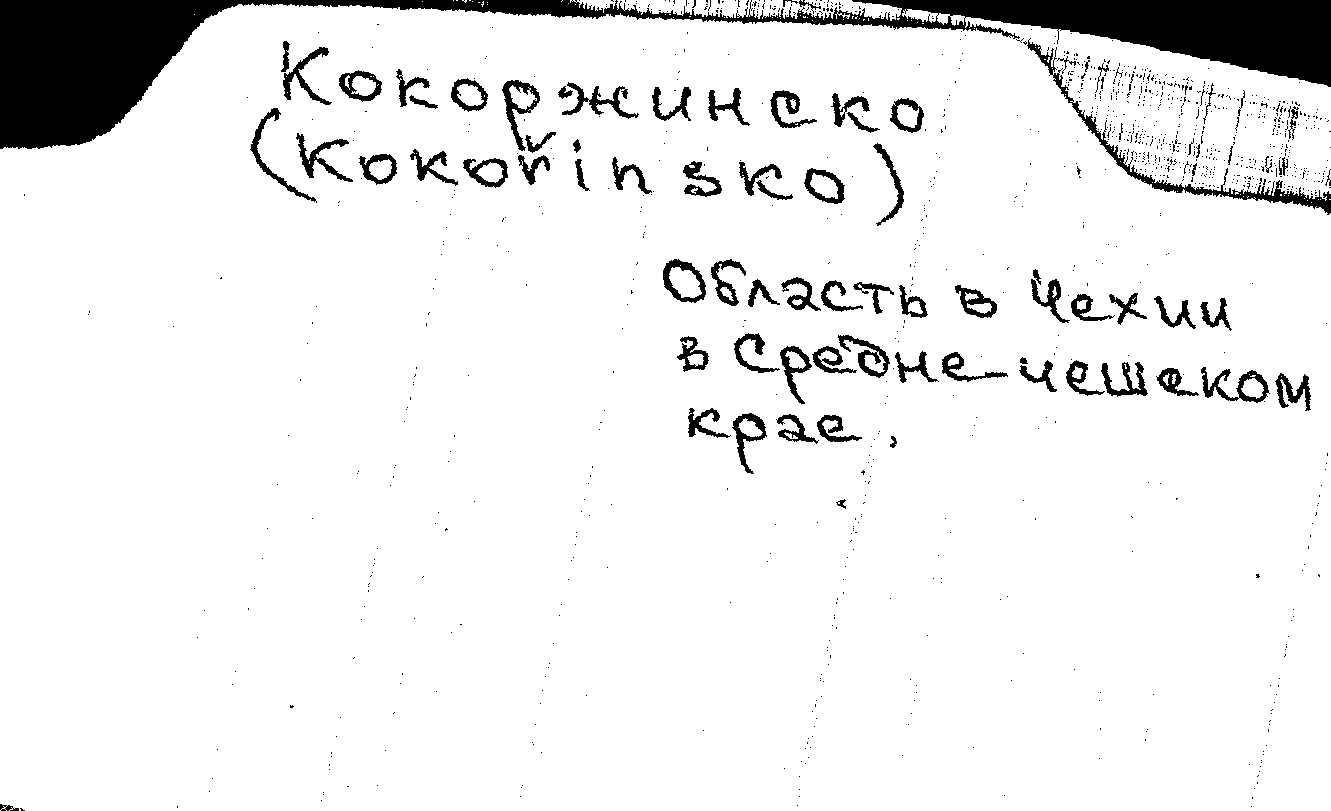 Кокоржинско
(Kokořinsko)
Область в Чехии
в Средне-чешском
крае.